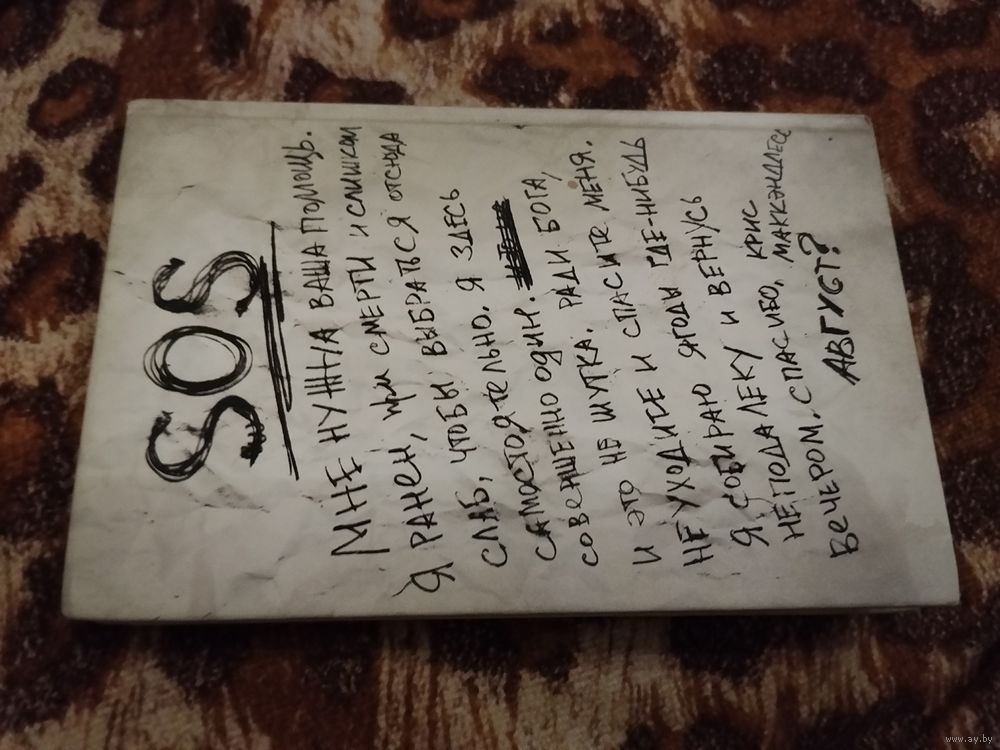 SOS
МНЕ НУЖНА ВАША ПОМОЩЬ.
Я РАНЕН, ПРИ СМЕРТИ И СЛИШКОМ
СЛАБ, ЧТОБЫ ВЫБРАТЬСЯ ОТСЮДА
САМОСТОЯТЕЛЬНО. Я ЗДЕСЬ
СОВЕРШЕННО ОДИН.
И ЭТО НЕ ШУТКА. РАДИ БОГА,
НЕ УХОДИТЕ И СПАСИТЕ МЕНЯ.
Я СОБИРАЮ ЯГОДЫ ГДЕ-НИБУДЬ
НЕПОДАЛЕКУ И ВЕРНУСЬ
ВЕЧЕРОМ. СПАСИБО, КРИС
МАККЭНДЛЕСС
АВГУСТ?
www.ay.by